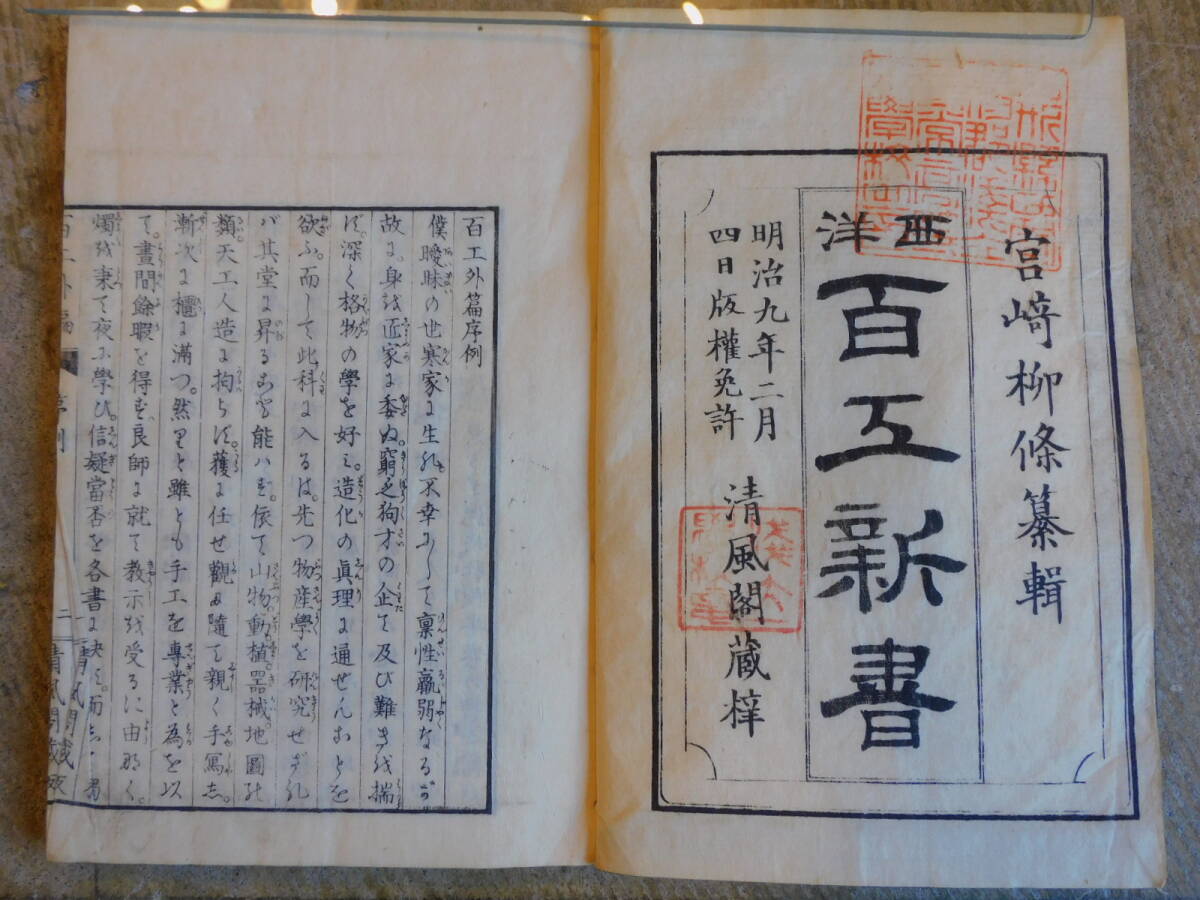 宮﨑柳條纂輯
西洋
百工新書
明治九年二月
四日版權免許
清風閣蔵梓
百工外篇序例
僕曖昧の也寒家に生れ不幸にして稟性羸弱なるが
故に。身を匠家に委ぬ。窮乏狗才の企て及び難きを揣
らず。深く格物の學を好ミ。造化の眞理に通せんことを
欲ふ。而して此科に入るは。先つ物産學を研究せざれ
バ其堂に昇ること能ハず。依て山物動植器械地圖の
類。天工人造に拘らず。獲に任せ觀に隨て親く手寫し。
漸次に櫃に滿つ。然りと雖とも手工を專業と為を以
て。晝間餘暇を得ず。良師に就て教示を受るに由那く。
燭を秉て夜に學び。信疑當否を各書に决ず。而